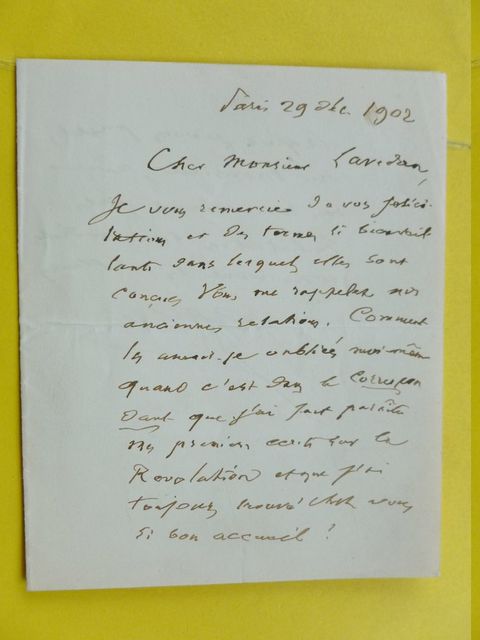 Paris 29 déc. 1902
Cher Monsieur Lavedan,
Je vous remercie de vos félici-
tations et des termes si bienveil
lants dans lesquels elles sont
conçues. Vous me rappelez nos
anciennes relations. Comment
les aurais-je oubliées moi-même
quand c'est dans le Correspon
dant que j'ai fait paraître
mes premiers écrits sur la
Révolution et que j'ai
toujours trouvé chez vous
si bon accueil !